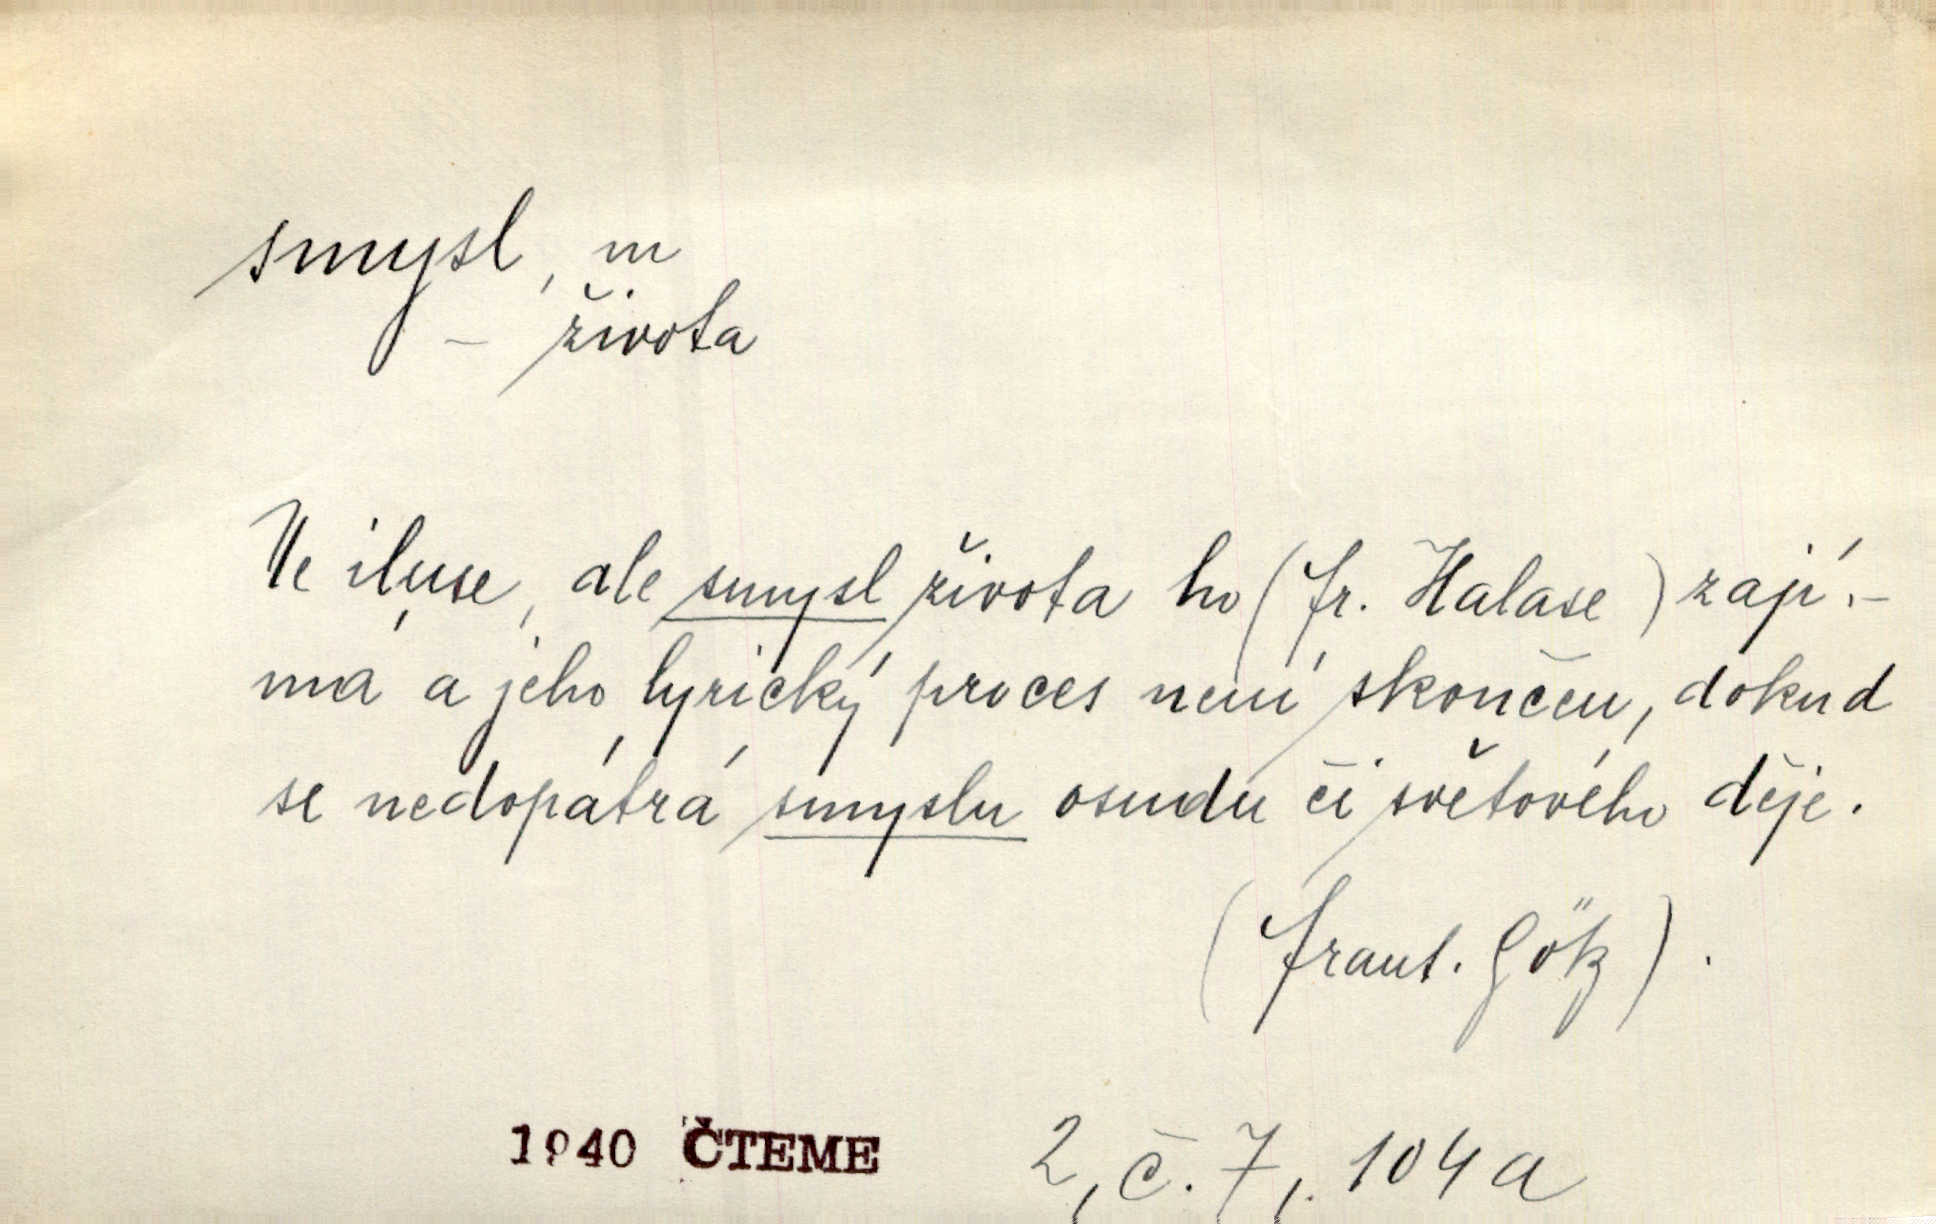 smysl, m
– života
Ne iluse, ale smysl života ho (Fr. Halase) zají-
má a jeho lyrický proces není skončen, dokud
se nedopátrá smyslu osudu či světového děje.
(Frant. Götz).
1940 ČTEME 2, č. 7, 104a